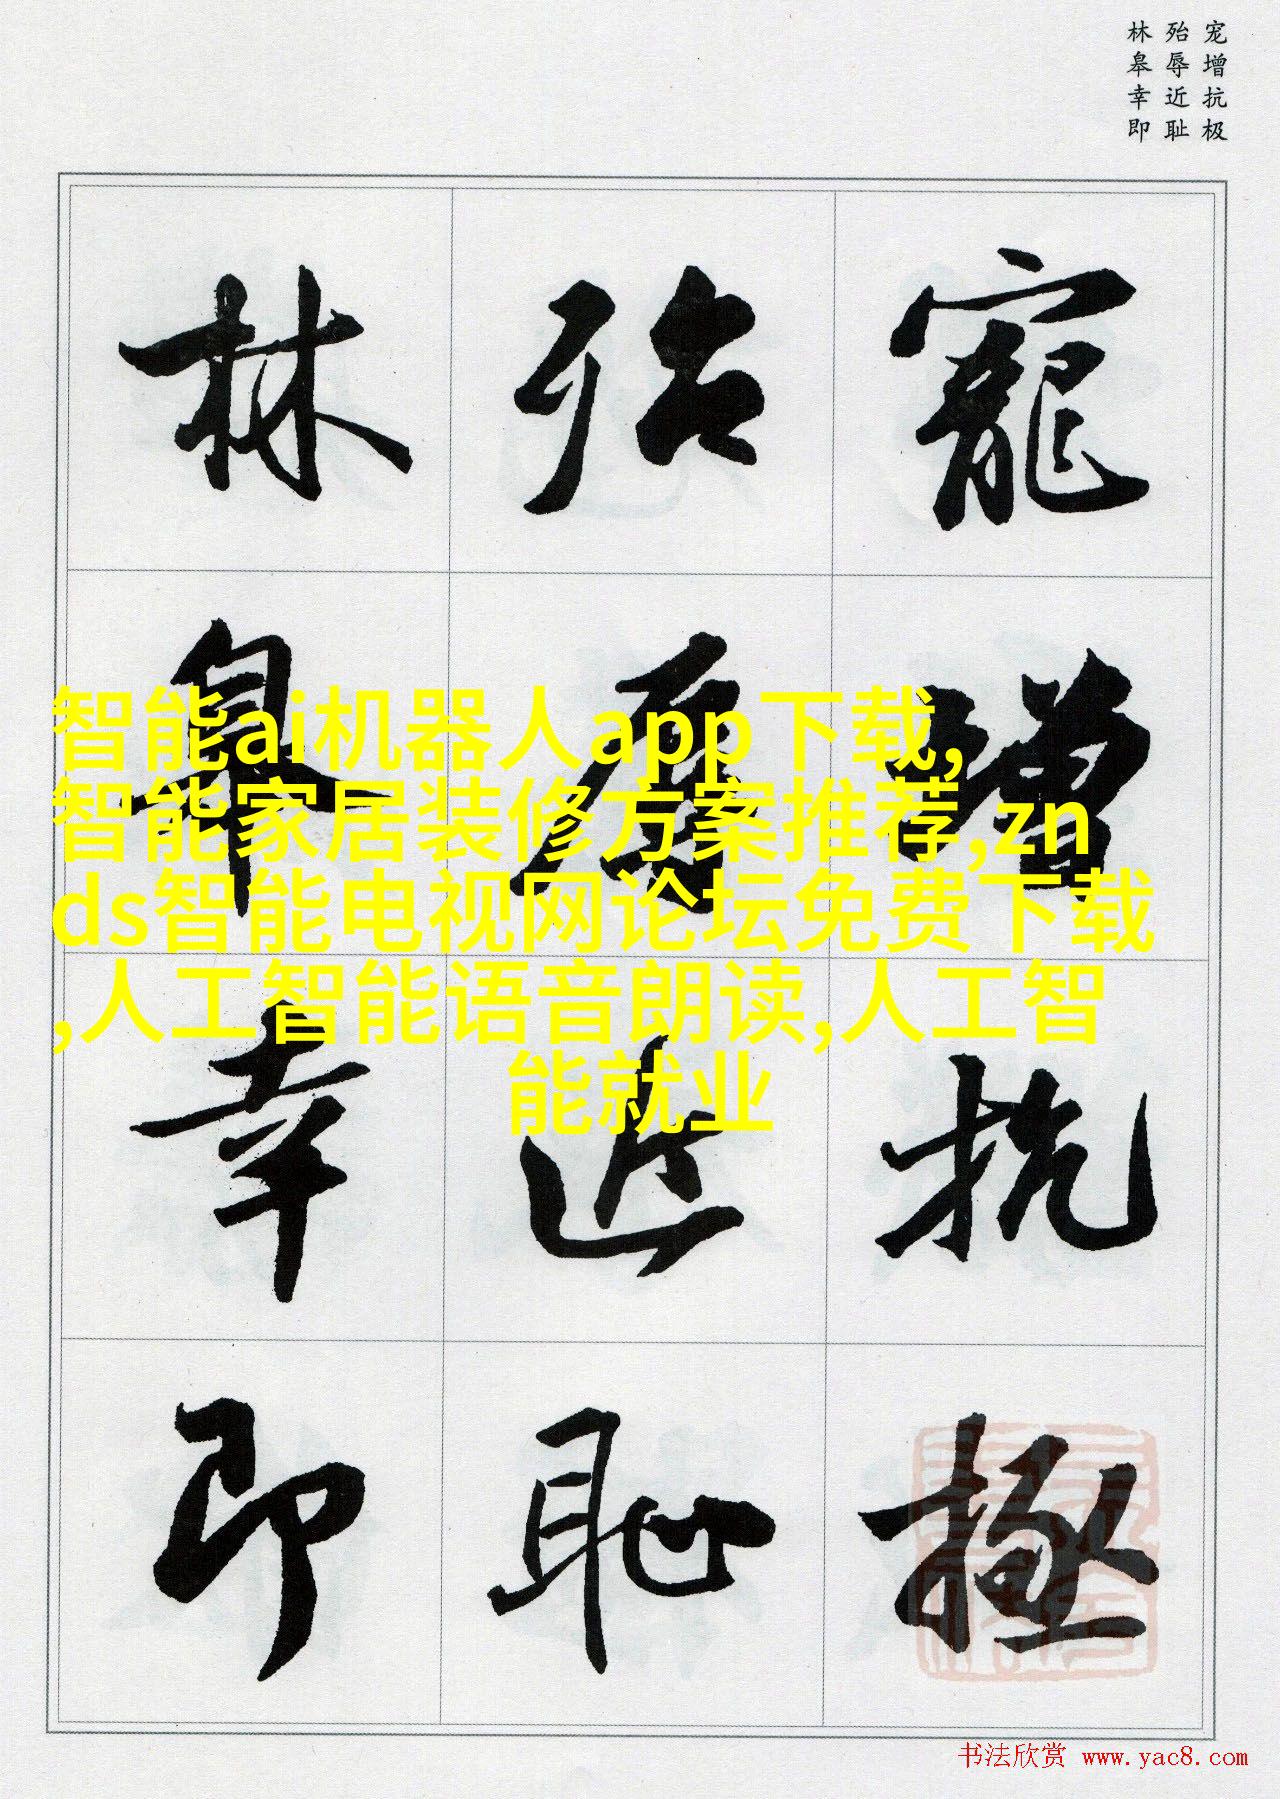 宠增抗极
殆辱近耻
林皋幸即
寵增抗極
殆辱近恥
林皋幸即
智能ai机器人app下载,
智能家居装修方案推荐,zn
ds智能电视网论坛免费下载
,人工智能语音朗读,人工智
能就业
书法欣赏 www.yac8.com